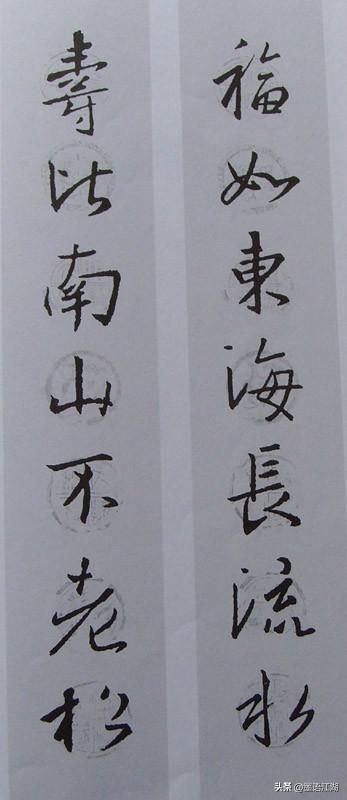 福如東海長流水
壽比南山不老松
头条 @墨语江湖